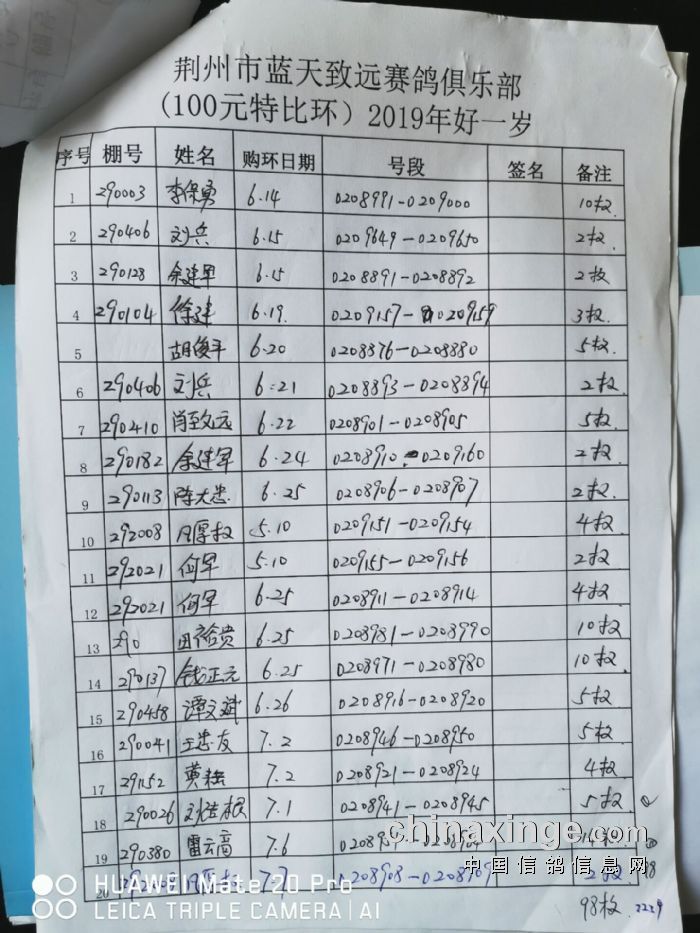 荆州市蓝天致远赛鸽俱乐部
(100元特比环) 2019年好一岁
序号 棚号 姓名 购环日期 号段 签名 备注
1 290003 李保勇 6.14 0208991-0209000 10枚
2 290406 刘兵 6.15 0209649-0209650 2枚
3 290128 余建军 6.15 0208891-0208892 2枚
4 290104 徐建 6.19 0209157-0209159 3枚
5 胡俊平 6.20 0208876-0208880 5枚
6 290406 刘兵 6.21 0208893-0208894 2枚
7 290410 肖致远 6.22 0208901-0208905 5枚
8 290182 余建军 6.24 0208910 0209160 2枚
9 290113 陈大忠 6.25 0208906-0208907 2枚
10 292008 5.10 0209151-0209154 4枚
11 292021 何军 5.10 0209155-0209156 2枚
12 292021 何军 6.25 0208911-0208914 4枚
13 290 田裕贵 6.25 0208981-0208990 10枚
14 290137 钱正元 6.25 0208971-0208980 10枚
15 290458 谭文斌 6.26 0208916-0208920 5枚
16 290041 王忠友 7.2 0208946-0208950 5枚
17 291152 黄 7.2 0208921-0208924 4枚
18 290026 刘浩根 7.1 0208941-0208945 5枚
19 290380 雷云高 7.6
20 7.7 0208908-0208909 2枚
98枚 2229
chinaxinge.com
中国信鸽信息网
HUAWEI Mate 20 Pro
LEICA TRIPLE CAMERA | AI